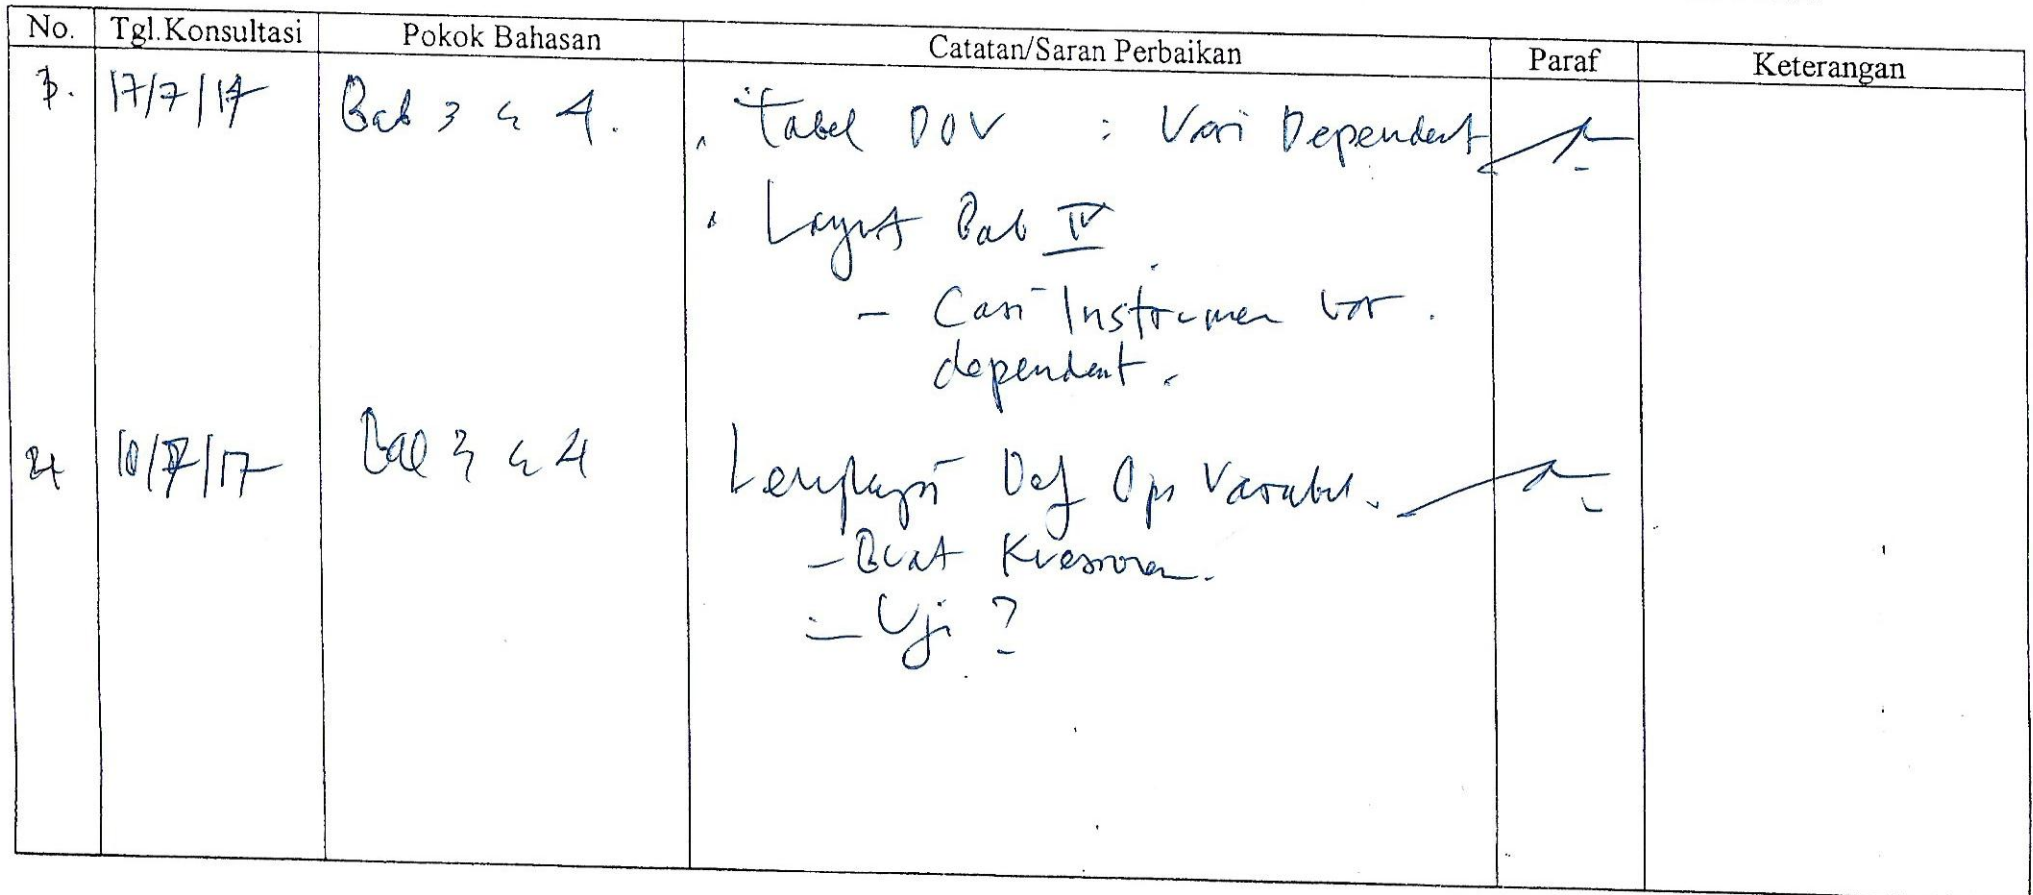 No. Tgl.Konsultasi Pokok Bahasan Catatan/Saran Perbaikan Paraf Keterangan
3. 17/7/17 Bab 3 & 4. Tabel DOV : Vari Dependent
Lanjut Bab IV
- Cari Instrumen var.
dependent.
4 10/8/17 Bab 3 & 4 Lengkapi Def Ops Variabel.
- Buat Kuesioner.
- Uji ?